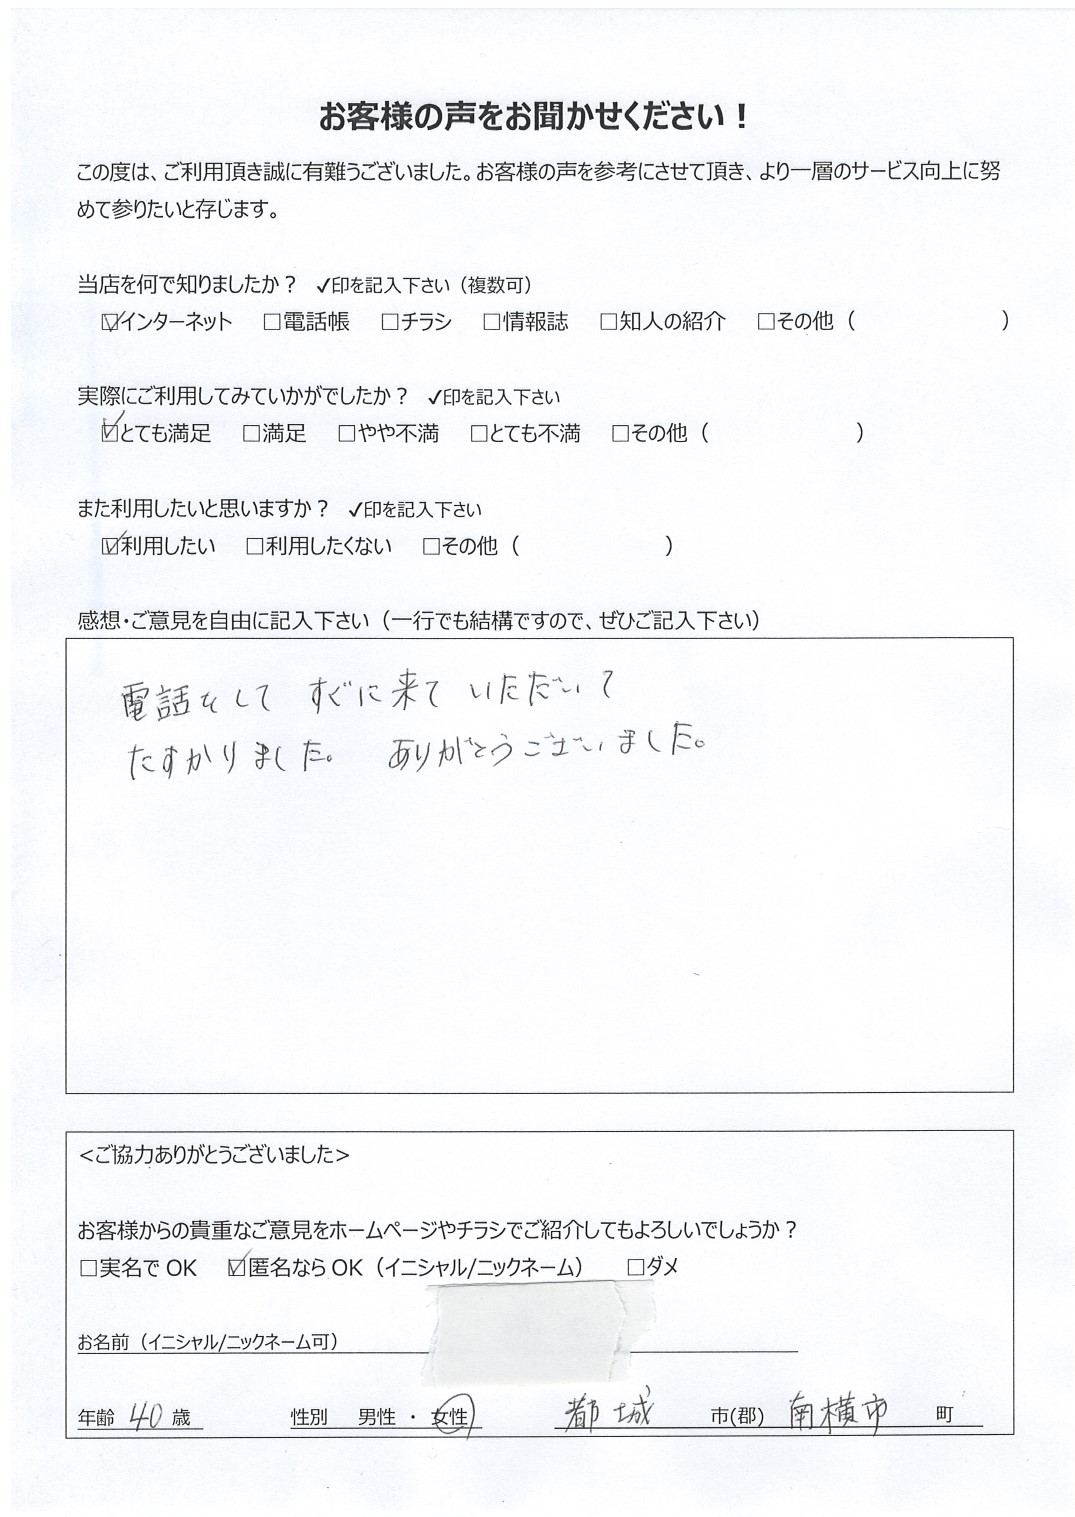 お客様の声をお聞かせください！
この度は、ご利用頂き誠に有難うございました。お客様の声を参考にさせて頂き、より一層のサービス向上に努
めて参りたいと存じます。
当店を何で知りましたか？ ✓印を記入下さい（複数可）
☑インターネット □電話帳 □チラシ □情報誌 □知人の紹介 □その他（ ）
実際にご利用してみていかがでしたか？ ✓印を記入下さい
☑とても満足 □満足 □やや不満 □とても不満 □その他（ ）
また利用したいと思いますか？ ✓印を記入下さい
☑利用したい □利用したくない □その他（ ）
感想・ご意見を自由に記入下さい（一行でも結構ですので、ぜひご記入下さい）
電話をして すぐに来て いただいて
たすかりました。 ありがとうございました。
<ご協力ありがとうございました>
お客様からの貴重なご意見をホームページやチラシでご紹介してもよろしいでしょうか？
□実名でOK ☑匿名ならOK（イニシャル/ニックネーム） □ダメ
お名前（イニシャル/ニックネーム可）
年齢 40 歳 性別 男性 ・ 女性 都城 市(郡) 南横市 町